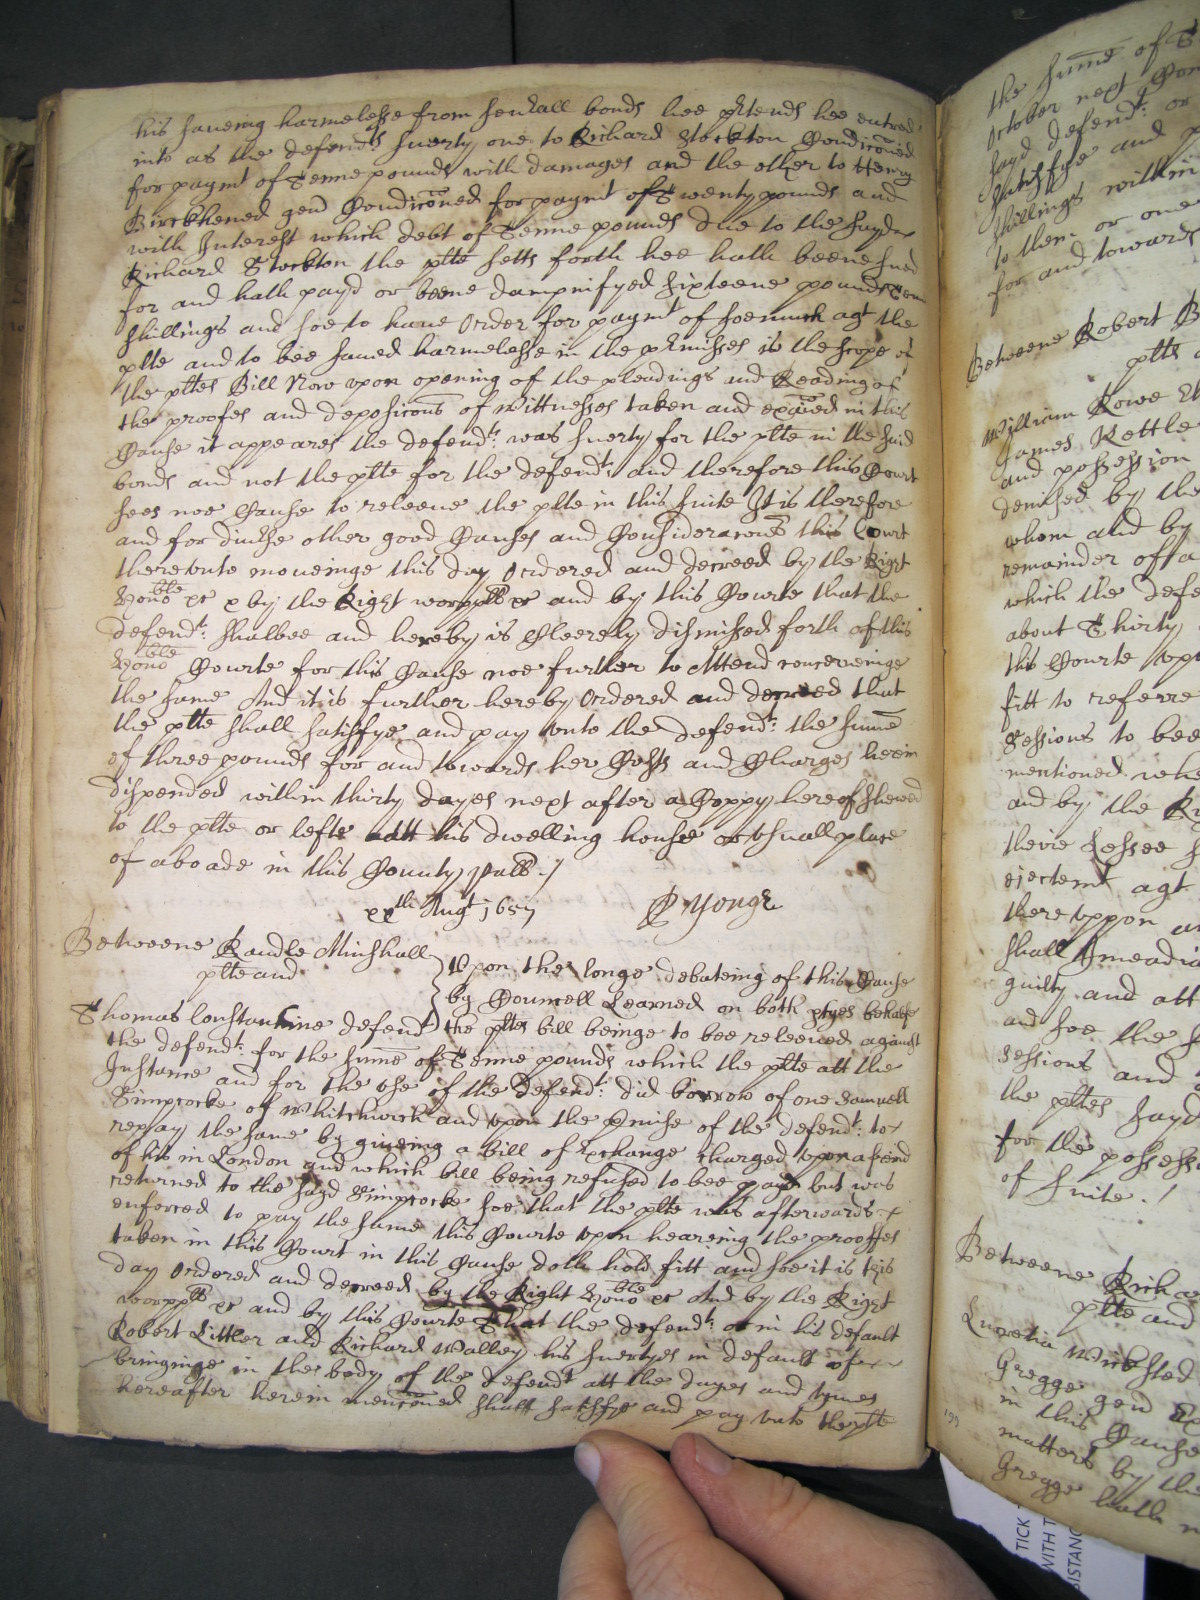 his saveing harmelesse from sev'all bonds hee p'tends hee entred
into as the defendts suerty one to Richard Stockton Condic̄oned
for paymt of Tenne pounds with damages and the other to Henry
Birckhened gent Condic̄oned for paymt of Twenty pounds and
with Interest which debt of Tenne pounds due to the sayd
Richard Stockton the plte setts forth hee hath beene sued
for and hath payd or beene dampnifyed sixteene pounds Tenn
shillings and soe to have Order for paymt of soe much agt the
plte and to bee saved harmelesse in the p'misses is the scope of
the pltes Bill Now upon opening of the pleadings and Reading of
the proofes and deposic̄ons of wittnesses taken and exa͞ied in this
Cause it appeares the defendt: was suerty for the plte in the said
bonds and not the plte for the defendt: and therefore this Court
sees noe Cause to releeve the plte in this suite It is therefore
and for div'se other good Causes and Considerac̄ons this Court
thereunto moveinge this day Ordered and decreed by the Right
Honoble xr x by the Right worpll xr and by this Courte that the
defendt: shalbee and hereby is Cleerely dismissed forth of this
Honoble Courte for this Cause noe further to Attend concerneinge
the same And it is further hereby Ordered and decreed that
the plte shall satisfye and pay unto the defendt: the sum̄e
of three pounds for and towards her Costs and Charges herein
dispended within thirty dayes next after a Coppy hereof shewed
to the plte or lefte att his dwelling house or usuall place
of aboade in this County pall:/
xxth Augt 1657 P Yonge
Betweene Randle Minshall
plte and
Upon the longe debateing of this Cause
by Councell Learned on both ptyes behalfe
Thomas Constantine defendt the pltes bill beinge to bee releeved against
the defendt: for the sum̄e of Tenne pounds which the plte att the
Instance and for the use of the defendt: did borrow of one Samuell
Simpcocke of Whitchurch and upon the p'mise of the defendt: to
repay the same by giveing a bill of Exchange charged upon a freind
of his in London and which bill being refused to bee payd but was
returned to the sayd Simpcocke soe that the plte was afterwards
enforced to pay the same this Courte upon heareing the prooffes
taken in this Court in this Cause doth hold fitt and soe it is this
day Ordered and decreed by the Right Honoble xr And by the Right
worppll xr and by this Courte That the defendt: or in his default
Robert Littler and Richard Walley his suertyes in default of
bringinge in the body of the defendt att the dayes and tymes
hereafter herein menc̄oned shall satisfye and pay unto the plte
the sum̄e of T
October next
sayd defendt: or
satisfye and
shillings within
to them or one
for and towards
Betweene Robert B
plts
William Rowe
James Kettle
and possession
demised by the
whom and by
remainder of a
which the defe
about Thirty
this Courte upo
fitt to referre
Sessions to bee
mentioned whe
and by the Ri
theire Lessee
ejectemt agt
thereuppon
shall Imeadia
guilty and att
and soe the
Sessions and
the pltes sayd
for the possessi
of suite./
Betweene Richa
plte and
Lucretia Wicksted
Gregge gent
in this Cause
matters by the
Gregge hath
199
TICK
WITH T
DISTANC